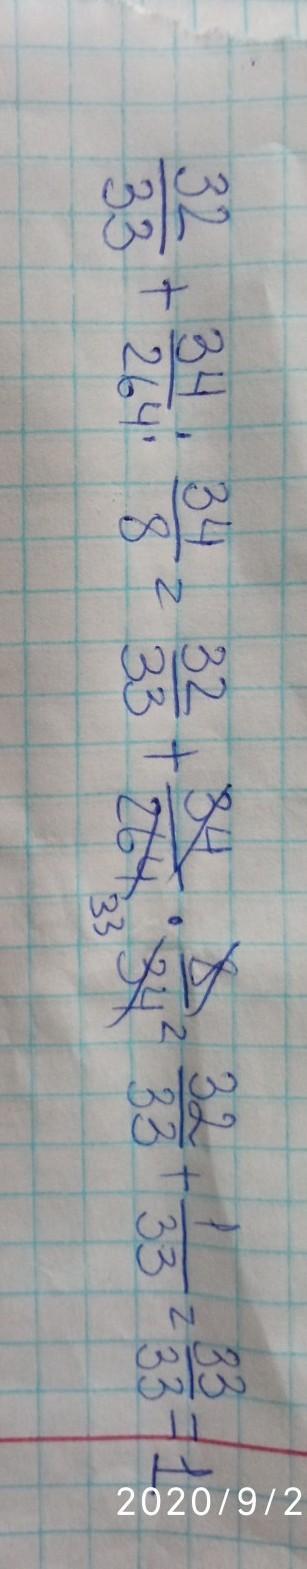 32/33 + 34/264 : 34/8 = 32/33 + 34/264 · 8/34 = 32/33 + 1/33 = 33/33 = 1
33
2020/9/2